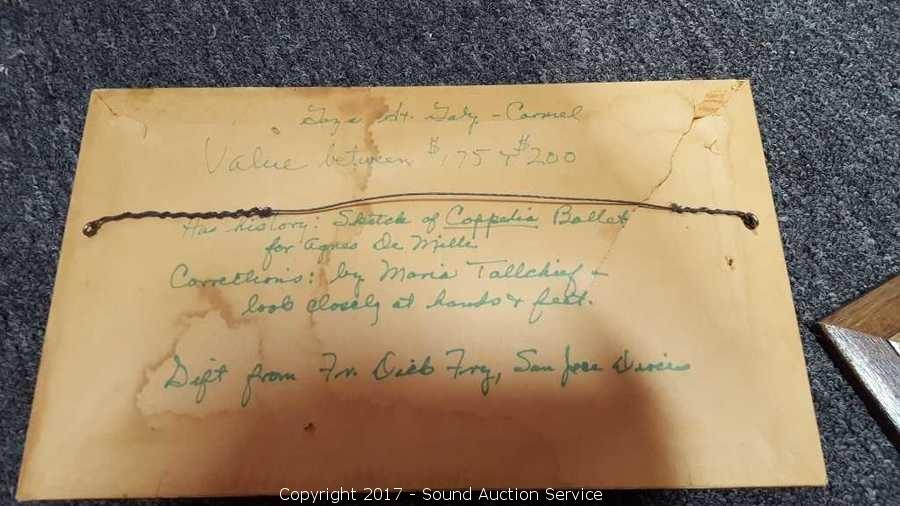 - Carmel
Value between $175 & $200
Has history: Sketch of Coppelia Ballet
for Agnes De Mille
Corrections: by Maria Tallchief -
look closely at hands & feet.
Gift from Fr. Dick Fry, San Jose
Copyright 2017 - Sound Auction Service